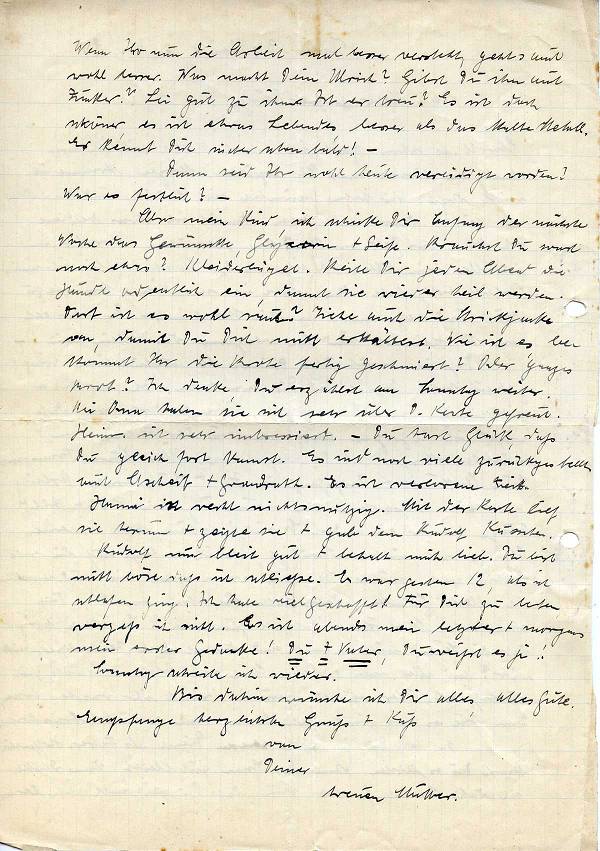 Wenn Ihr nun die Arbeit mal besser versteht, geht's auch
wohl besser. Was macht Dein Ulrich? Gibst Du ihm auch
Zucker? Sei gut zu ihm. Ist er treu? Es ist doch
schöner, es ist etwas Lebendes, besser als das kalte Metall.
Er kennt Dich sicher schon bald! –
Dann seid Ihr wohl heute vereidigt worden?
War es festlich? –
Aber mein Kind, ich schicke Dir Anfang der nächste
Woche das Gewünschte, Glyzerin + Seife. Brauchst Du sonst
noch etwas? Kleiderbügel. Reibe Dir jeden Abend die
Hände ordentlich ein, damit sie wieder heil werden.
Dort ist es wohl? Ziehe auch die Strickjacke
an, damit Du Dich nicht erkältest. Wie ist es, be-
kommt Ihr die Brote fertig geschmiert? Oder ganzes
Brot? Ich denke, Du erzählst am Sonntag weiter.
Bei Oma haben sie sich sehr über D. Karte gefreut.
Heinz ist sehr interessiert. – Du hast Glück, daß
Du gleich fort kamst. Es sind noch viele zurückgestellt
auch + . Es ist verlorene Zeit.
Hanni ist recht nichtsnutzig. Mit der Karte lief
sie herum + zeigte sie + gab dem Rudolf Küsschen.
Rudolf nun bleib gut + behalt mich lieb. Du bist
nicht böse, daß ich schliesse. Es war gestern 12, als ich
schlafen ging. Ich habe viel geschafft! Für Dich zu beten
vergess ich nicht. Es ist abends mein letzter + morgens
mein erster Gedanke! Du + Vater, Du weißt es ja!!
Sonntag schreibe ich wieder.
Bis dahin wünsche ich Dir alles, alles Gute.
Empfange herzlichste Grüsse + Kuß
von
Deiner
treuen Mutter.